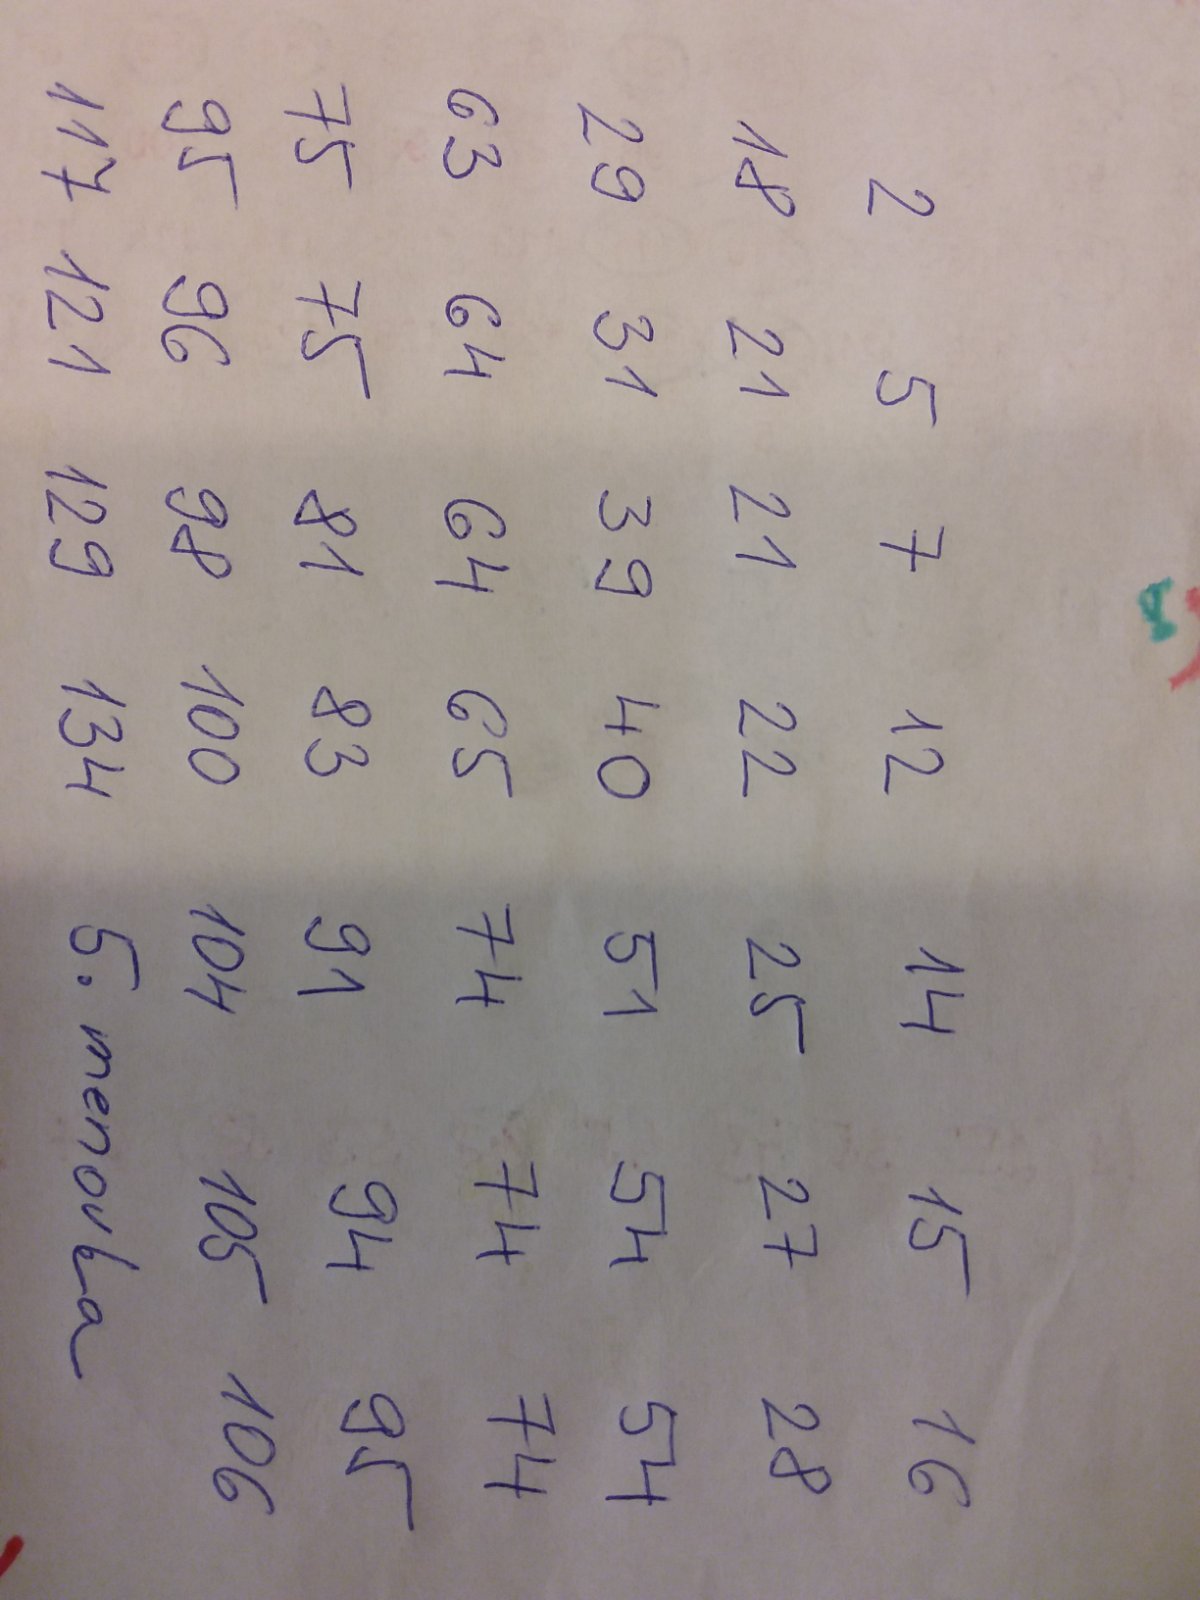 2 5 7 12 14 15 16
18 21 21 22 25 27 28
29 31 39 40 51 54 54
63 64 64 65 74 74 74
75 75 81 83 91 94 95
95 96 98 100 104 105 106
117 121 129 134 5. menovka